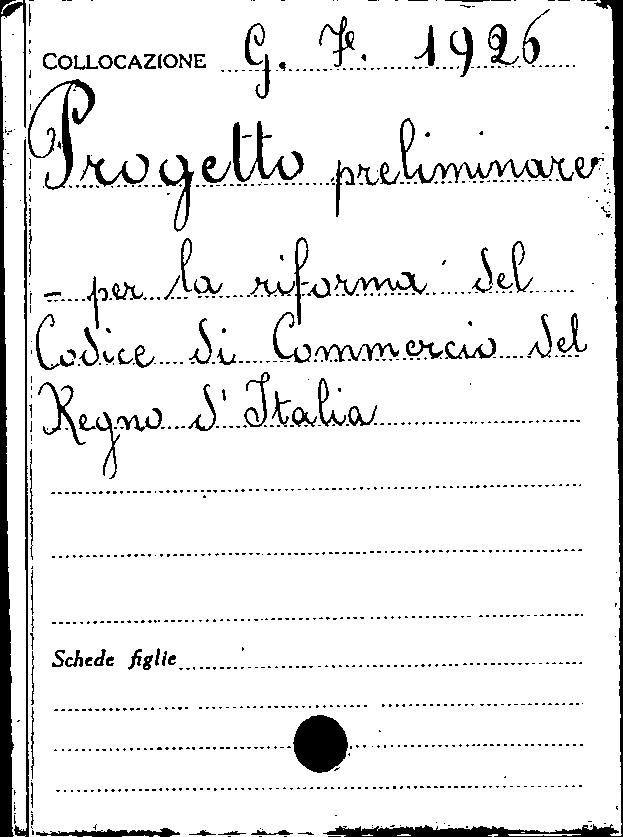 COLLOCAZIONE G. F. 1926
Progetto preliminare
- per la riforma del
Codice di Commercio del
Regno d'Italia
Schede figlie